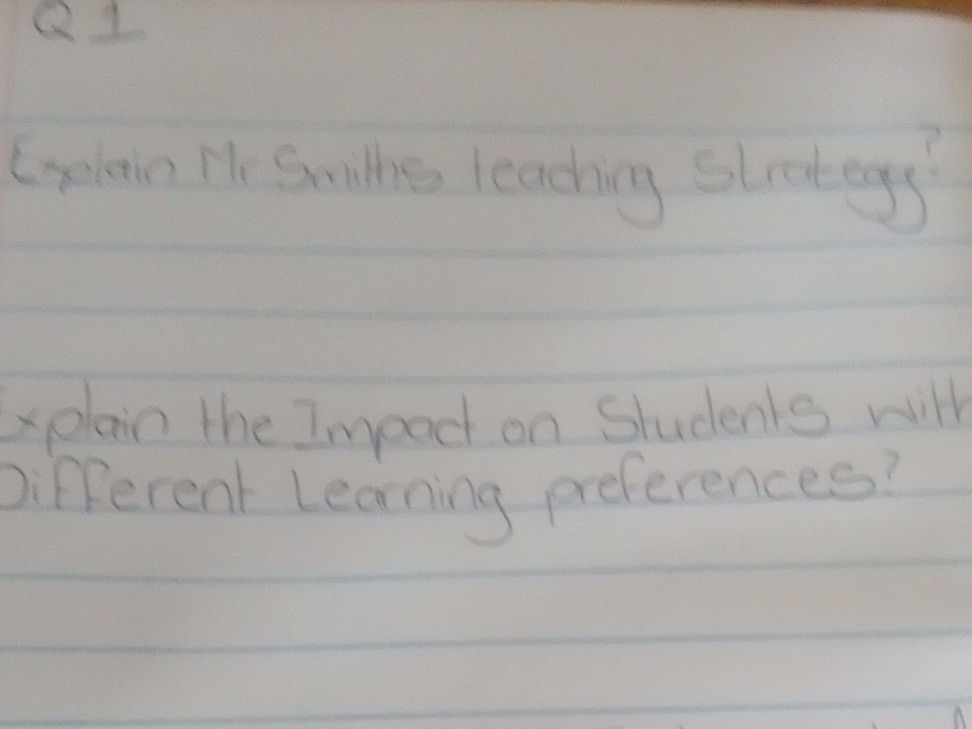 Q 1
Explain Mr Smiths teaching Strategy?
Explain the Impact on Students with
Different Learning preferences?